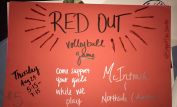 RED OUT
volleyball
game
Thursday
Aug 29
5:15-
come support
your girls
while we
play
McIntosh
Northside